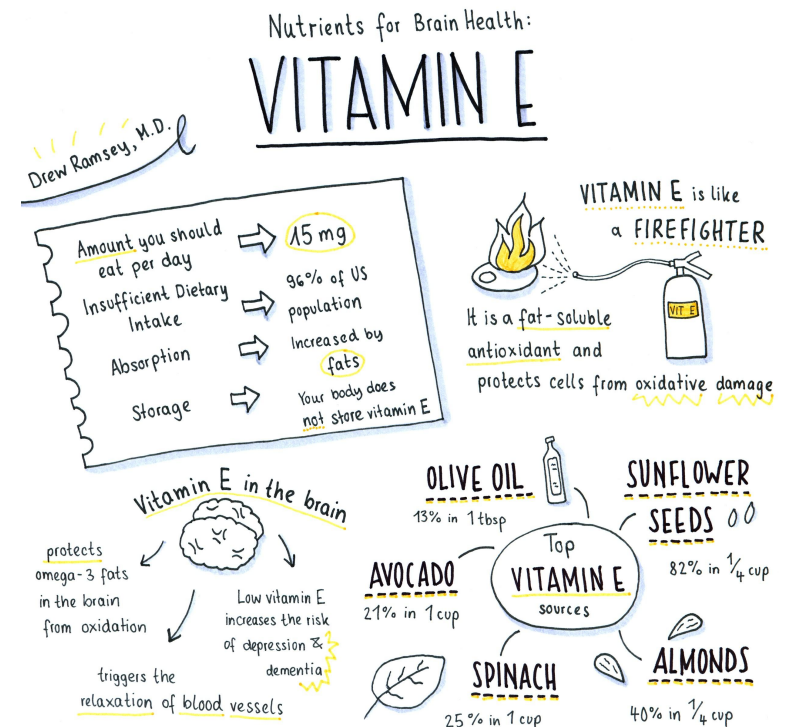 Nutrients for Brain Health:
VITAMIN E
Drew Ramsey, M.D.
Amount you should
eat per day
15 mg
Insufficient Dietary
Intake
96% of US
population
Absorption
Increased by
fats
Storage
Your body does
not store vitamin E
VITAMIN E is like
a FIREFIGHTER
VIT E
It is a fat-soluble
antioxidant and
protects cells from oxidative damage
Vitamin E in the brain
protects
omega-3 fats
in the brain
from oxidation
triggers the
relaxation of blood vessels
Low vitamin E
increases the risk
of depression &
dementia
Top
VITAMIN E
sources
OLIVE OIL
13% in 1 tbsp
SUNFLOWER
SEEDS
82% in 1/4 cup
AVOCADO
21% in 1 cup
SPINACH
25% in 1 cup
ALMONDS
40% in 1/4 cup